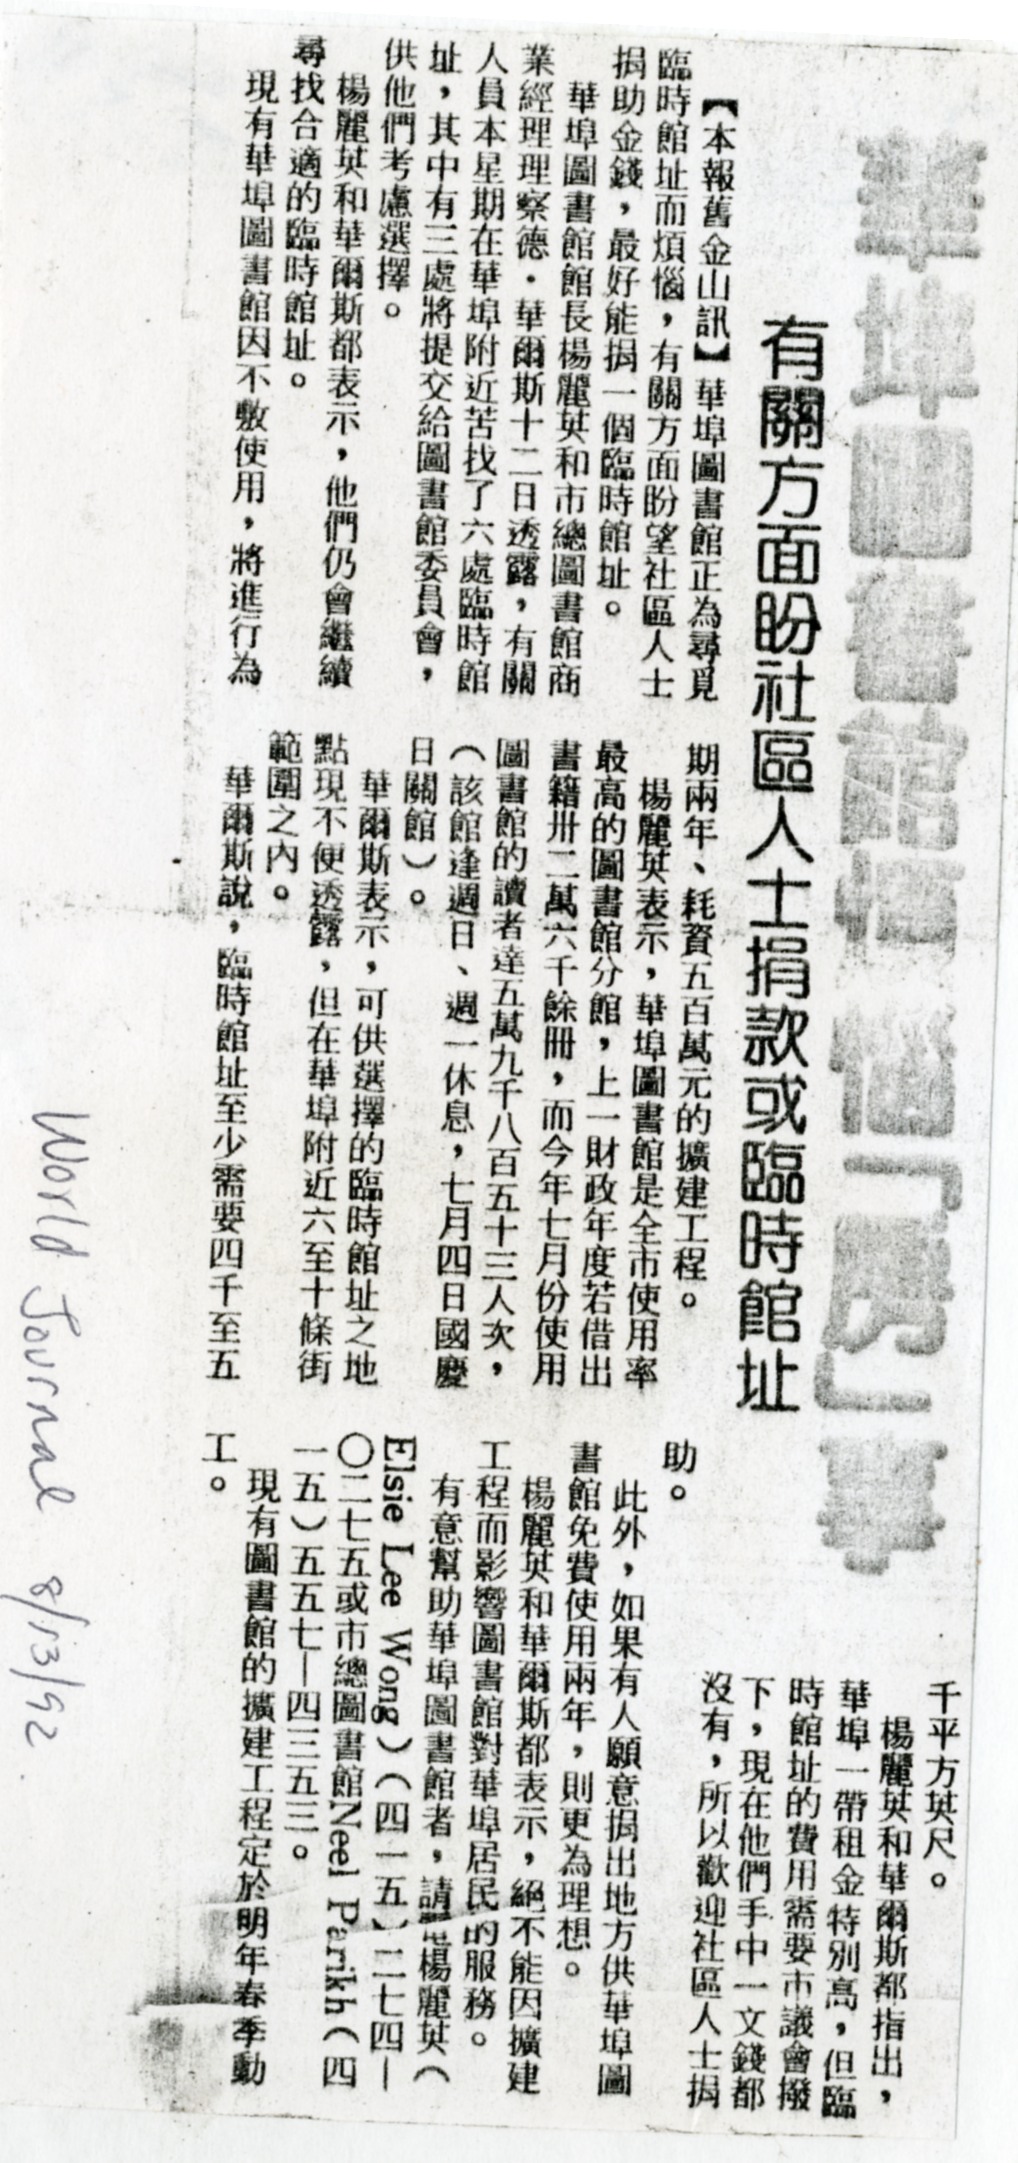 華埠圖書館煩惱「房」事
有關方面盼社區人士捐款或臨時館址
【本報舊金山訊】華埠圖書館正為尋覓
臨時館址而煩惱，有關方面盼望社區人士
捐助金錢，最好能捐一個臨時館址。
華埠圖書館館長楊麗英和市總圖書館商
業經理理察德．華爾斯十二日透露，有關
人員本星期在華埠附近苦找了六處臨時館
址，其中有三處將提交給圖書館委員會，
供他們考慮選擇。
楊麗英和華爾斯都表示，他們仍會繼續
尋找合適的臨時館址。
現有華埠圖書館因不敷使用，將進行為
期兩年、耗資五百萬元的擴建工程。
楊麗英表示，華埠圖書館是全市使用率
最高的圖書館分館，上一財政年度若借出
書籍卅二萬六千餘冊，而今年七月份使用
圖書館的讀者達五萬九千八百五十三人次，
（該館逢週日、週一休息，七月四日國慶
日關館）。
華爾斯表示，可供選擇的臨時館址之地
點現不便透露，但在華埠附近六至十條街
範圍之內。
華爾斯說，臨時館址至少需要四千至五
千平方英尺。
楊麗英和華爾斯都指出，
華埠一帶租金特別高，但臨
時館址的費用需要市議會撥
下，現在他們手中一文錢都
沒有，所以歡迎社區人士捐
助。
此外，如果有人願意捐出地方供華埠圖
書館免費使用兩年，則更為理想。
楊麗英和華爾斯都表示，絕不能因擴建
工程而影響圖書館對華埠居民的服務。
有意幫助華埠圖書館者，請楊麗英（
Elsie Lee Wong）（四一五）二七四—
〇二七五或市總圖書館Neel Parikh（四
一五）五五七—四三五三。
現有圖書館的擴建工程定於明年春季動
工。
World Journal 8/13/92